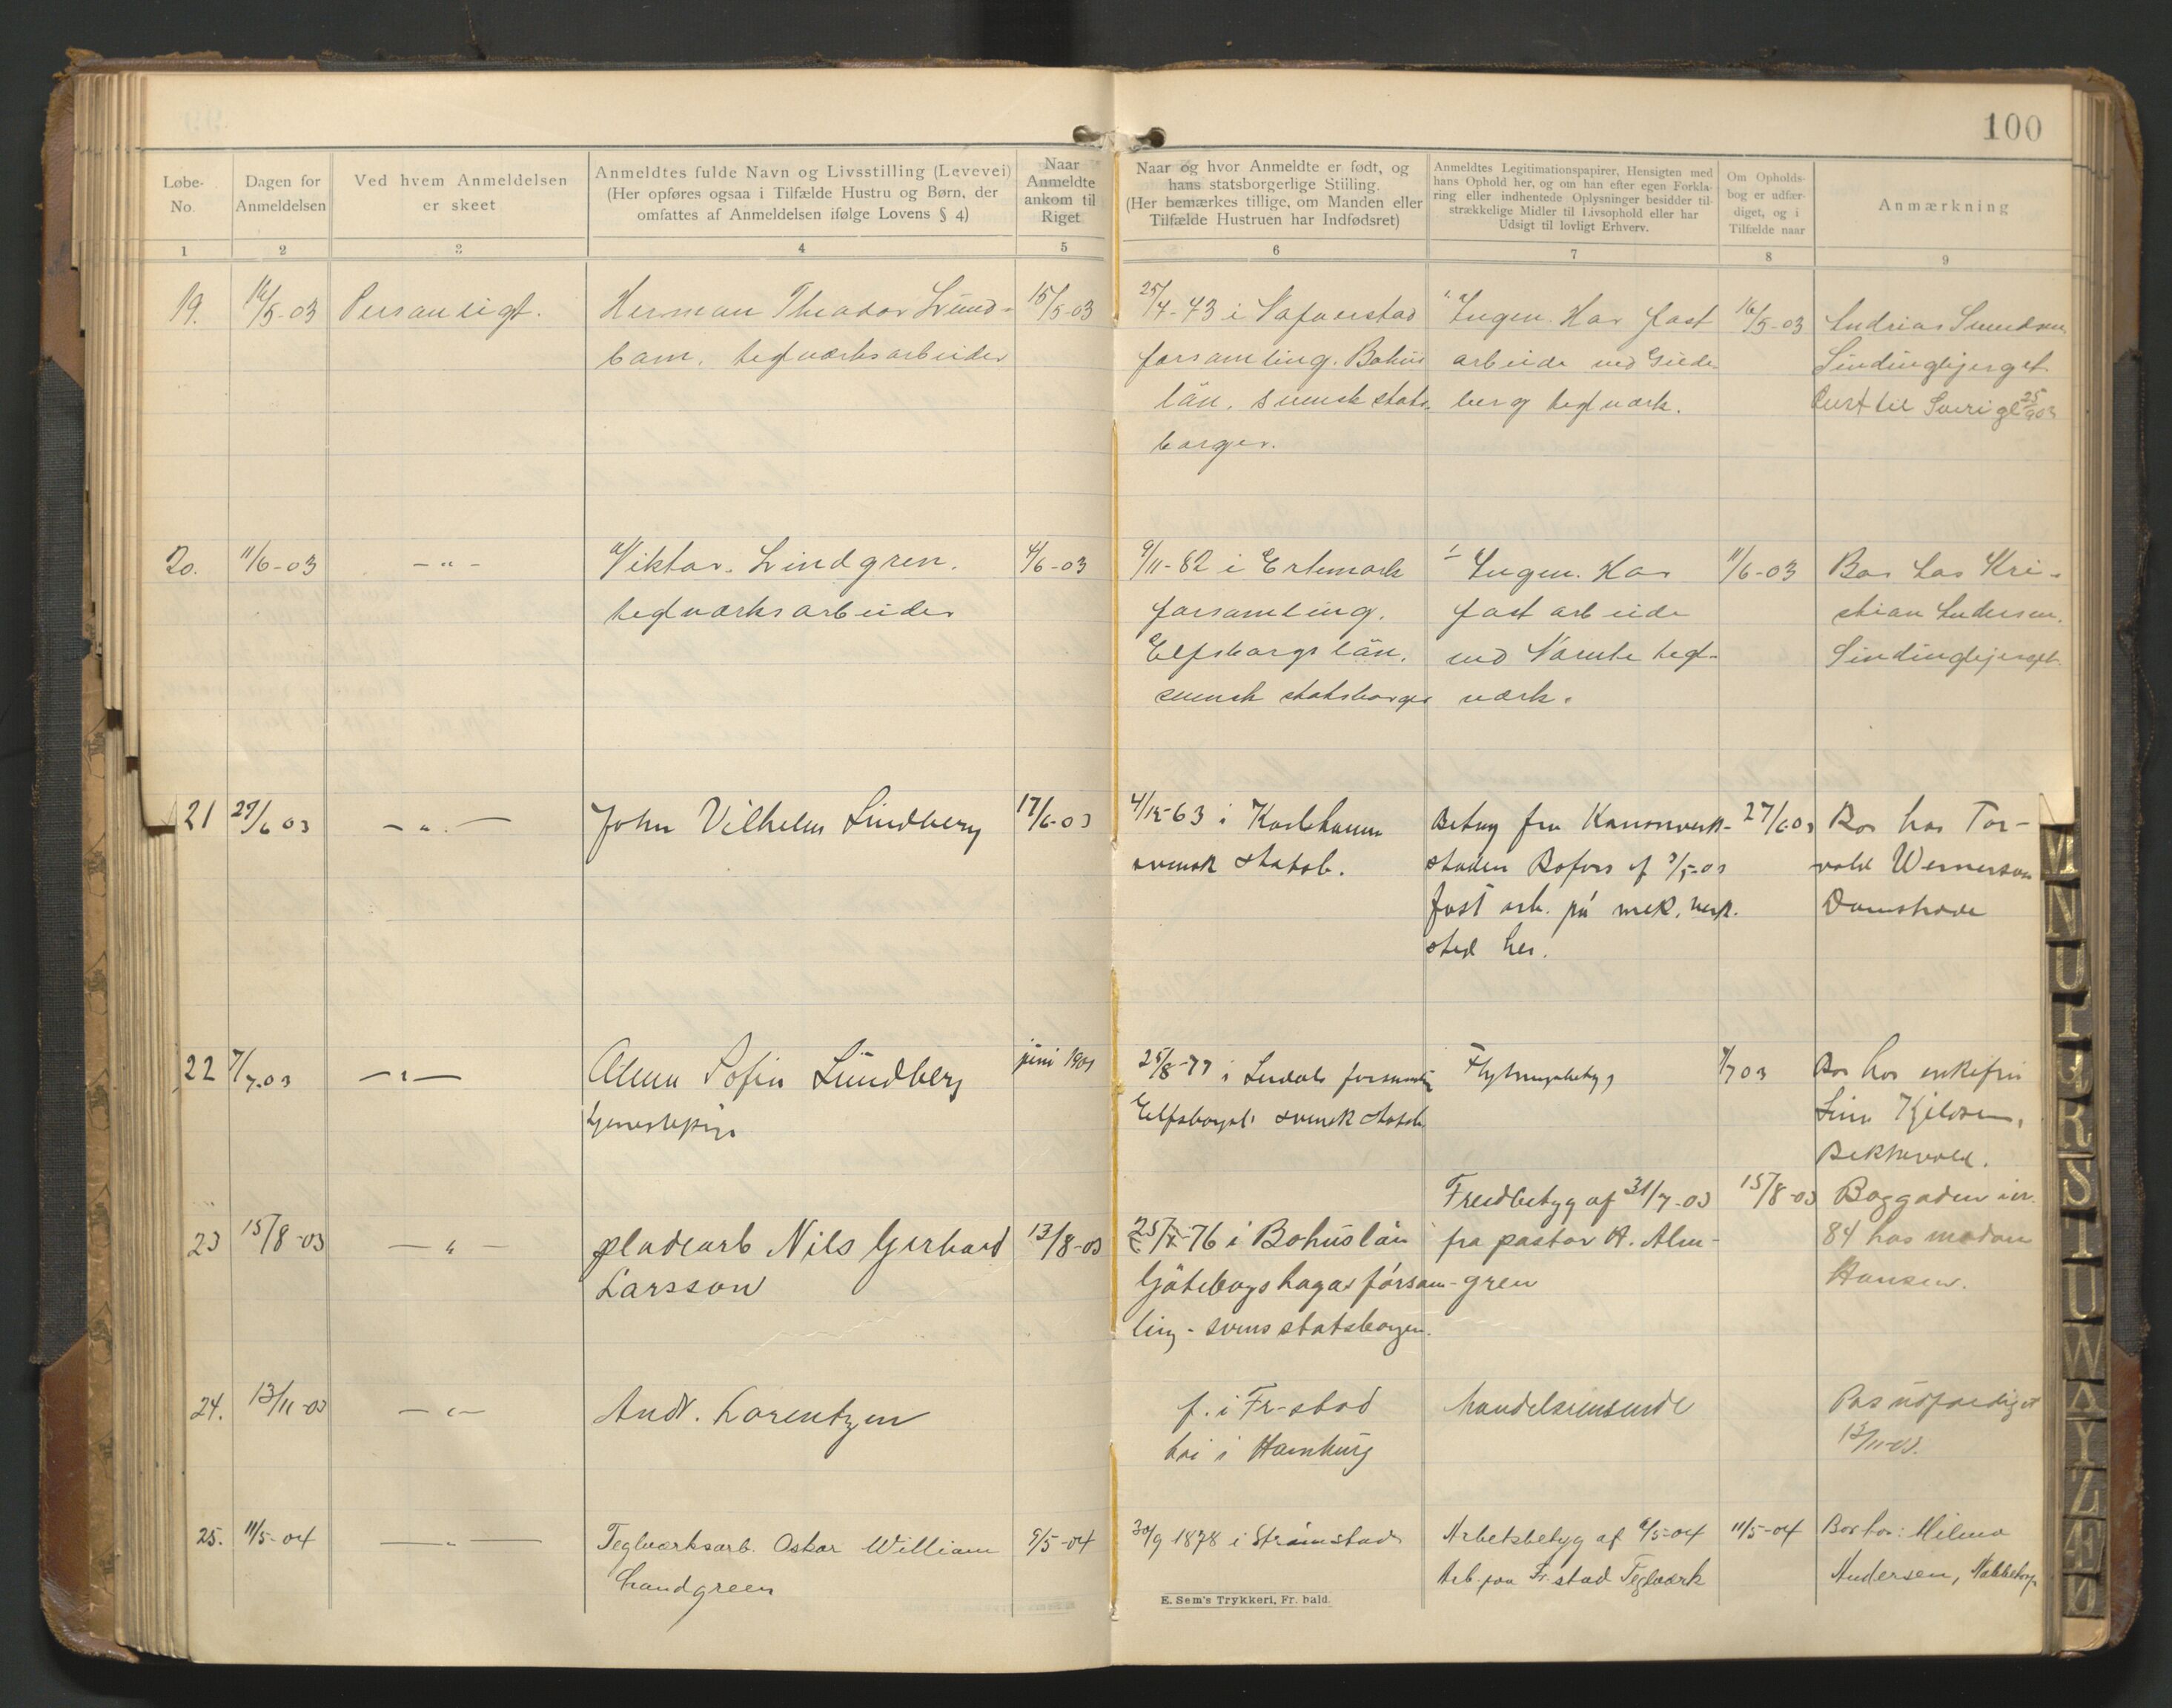 100
Løbe-
No.
Dagen for
Anmeldelsen
Ved hvem Anmeldelsen
er skeet
Anmeldtes fulde Navn og Livsstilling (Levevei)
(Her opføres ogsaa i Tilfælde Hustru og Børn, der
omfattes af Anmeldelsen ifølge Lovens § 4)
Naar
Anmeldte
ankom til
Riget
Naar og hvor Anmeldte er født, og
hans statsborgerlige Stilling.
(Her bemærkes tillige, om Manden eller
Tilfælde Hustruen har Indfødsret)
Anmeldtes Legitimationspapirer, Hensigten med
hans Ophold her, og om han efter egen Forkla-
ring eller indhentede Oplysninger besidder til-
strækkelige Midler til Livsophold eller har
Udsigt til lovligt Erhverv.
Om Opholds-
bog er udfær-
diget, og i
Tilfælde naar
Anmærkning
1 2 3 4 5 6 7 8 9
19. 16/5-03 Personligt. Herman Theodor Lund- 15/5-03 25/4-43 i Ingen. Har fast 16/5-03
bom. teglværksarbeider forsamling. Bohus arbeide ved Gude- Sindingbjerget
län. svensk stats- berg teglværk. til Sverige 25/9 03
borger.
20. 11/6-03 - " - Viktor Lindgren. 4/6-03 9/11-82 i Ertemark Ingen. Har 11/6-03 Bor hos Kri-
teglværksarbeider forsamling. fast arbeide stian Andersen.
Elfsborgs län. ved tegl- Sindingbjerget
svensk statsborger værk.
21 27/6 03 - " - John Vilhelm Lindberg 17/6-03 4/12-63 i Karlshamn Betyg fra Kanonverk- 27/6-03 Bor hos Tor-
svensk statsb. staden Bofors af fast arb. på mek. verk- vald Wernerson
sted her. Damstrade
22 7/7-03 - " - Sofia Lundberg juni 1901 25/8-77 i Flytningsbetyg 7/7 03 Bor hos enkefru
tjenestepige Elfsborgsl. svensk statsb. Kjelsen,
23 15/8-03 - " - pladearb Nils Gerhard 13/8-03 76 i Bohuslän Freidbetyg af 31/7-03 15/8-03 Baggaden nr.
Larsson Göteborgs haga försam- fra pastor A. Alm- 84 hos madam
ling - svens statsborger. gren Hansen.
24. 13/11-03 - " - Andr. Lorentzen f. i Fr-stad handelsreisende Pas udfærdiget
i Hamburg 13/11-03.
25. 11/5-04 - " - Teglværksarb. Oskar William 9/5-04 30/9 1878 i Strömstad Arbetsbetyg af 6/5-04 11/5-04 Bor hos: Milma
Landgreen Arb. paa Fr.stad Teglværk Andersen, Nabbetorp
E. Sem's Trykkeri, Fr. hald.
M
N
O
P
Q
R
S
T
U
W
A
Y
Z
Æ
Ø